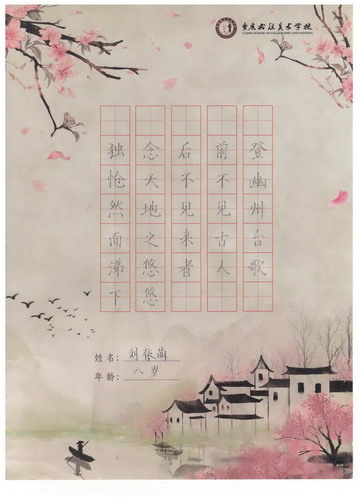 书法美术学校
SCHOOL OF CALLIGRAPHY AND PAINTING
登幽州台歌
前不见古人
后不见来者
念天地之悠悠
独怆然而涕下
姓名：刘依萌
年龄：八岁